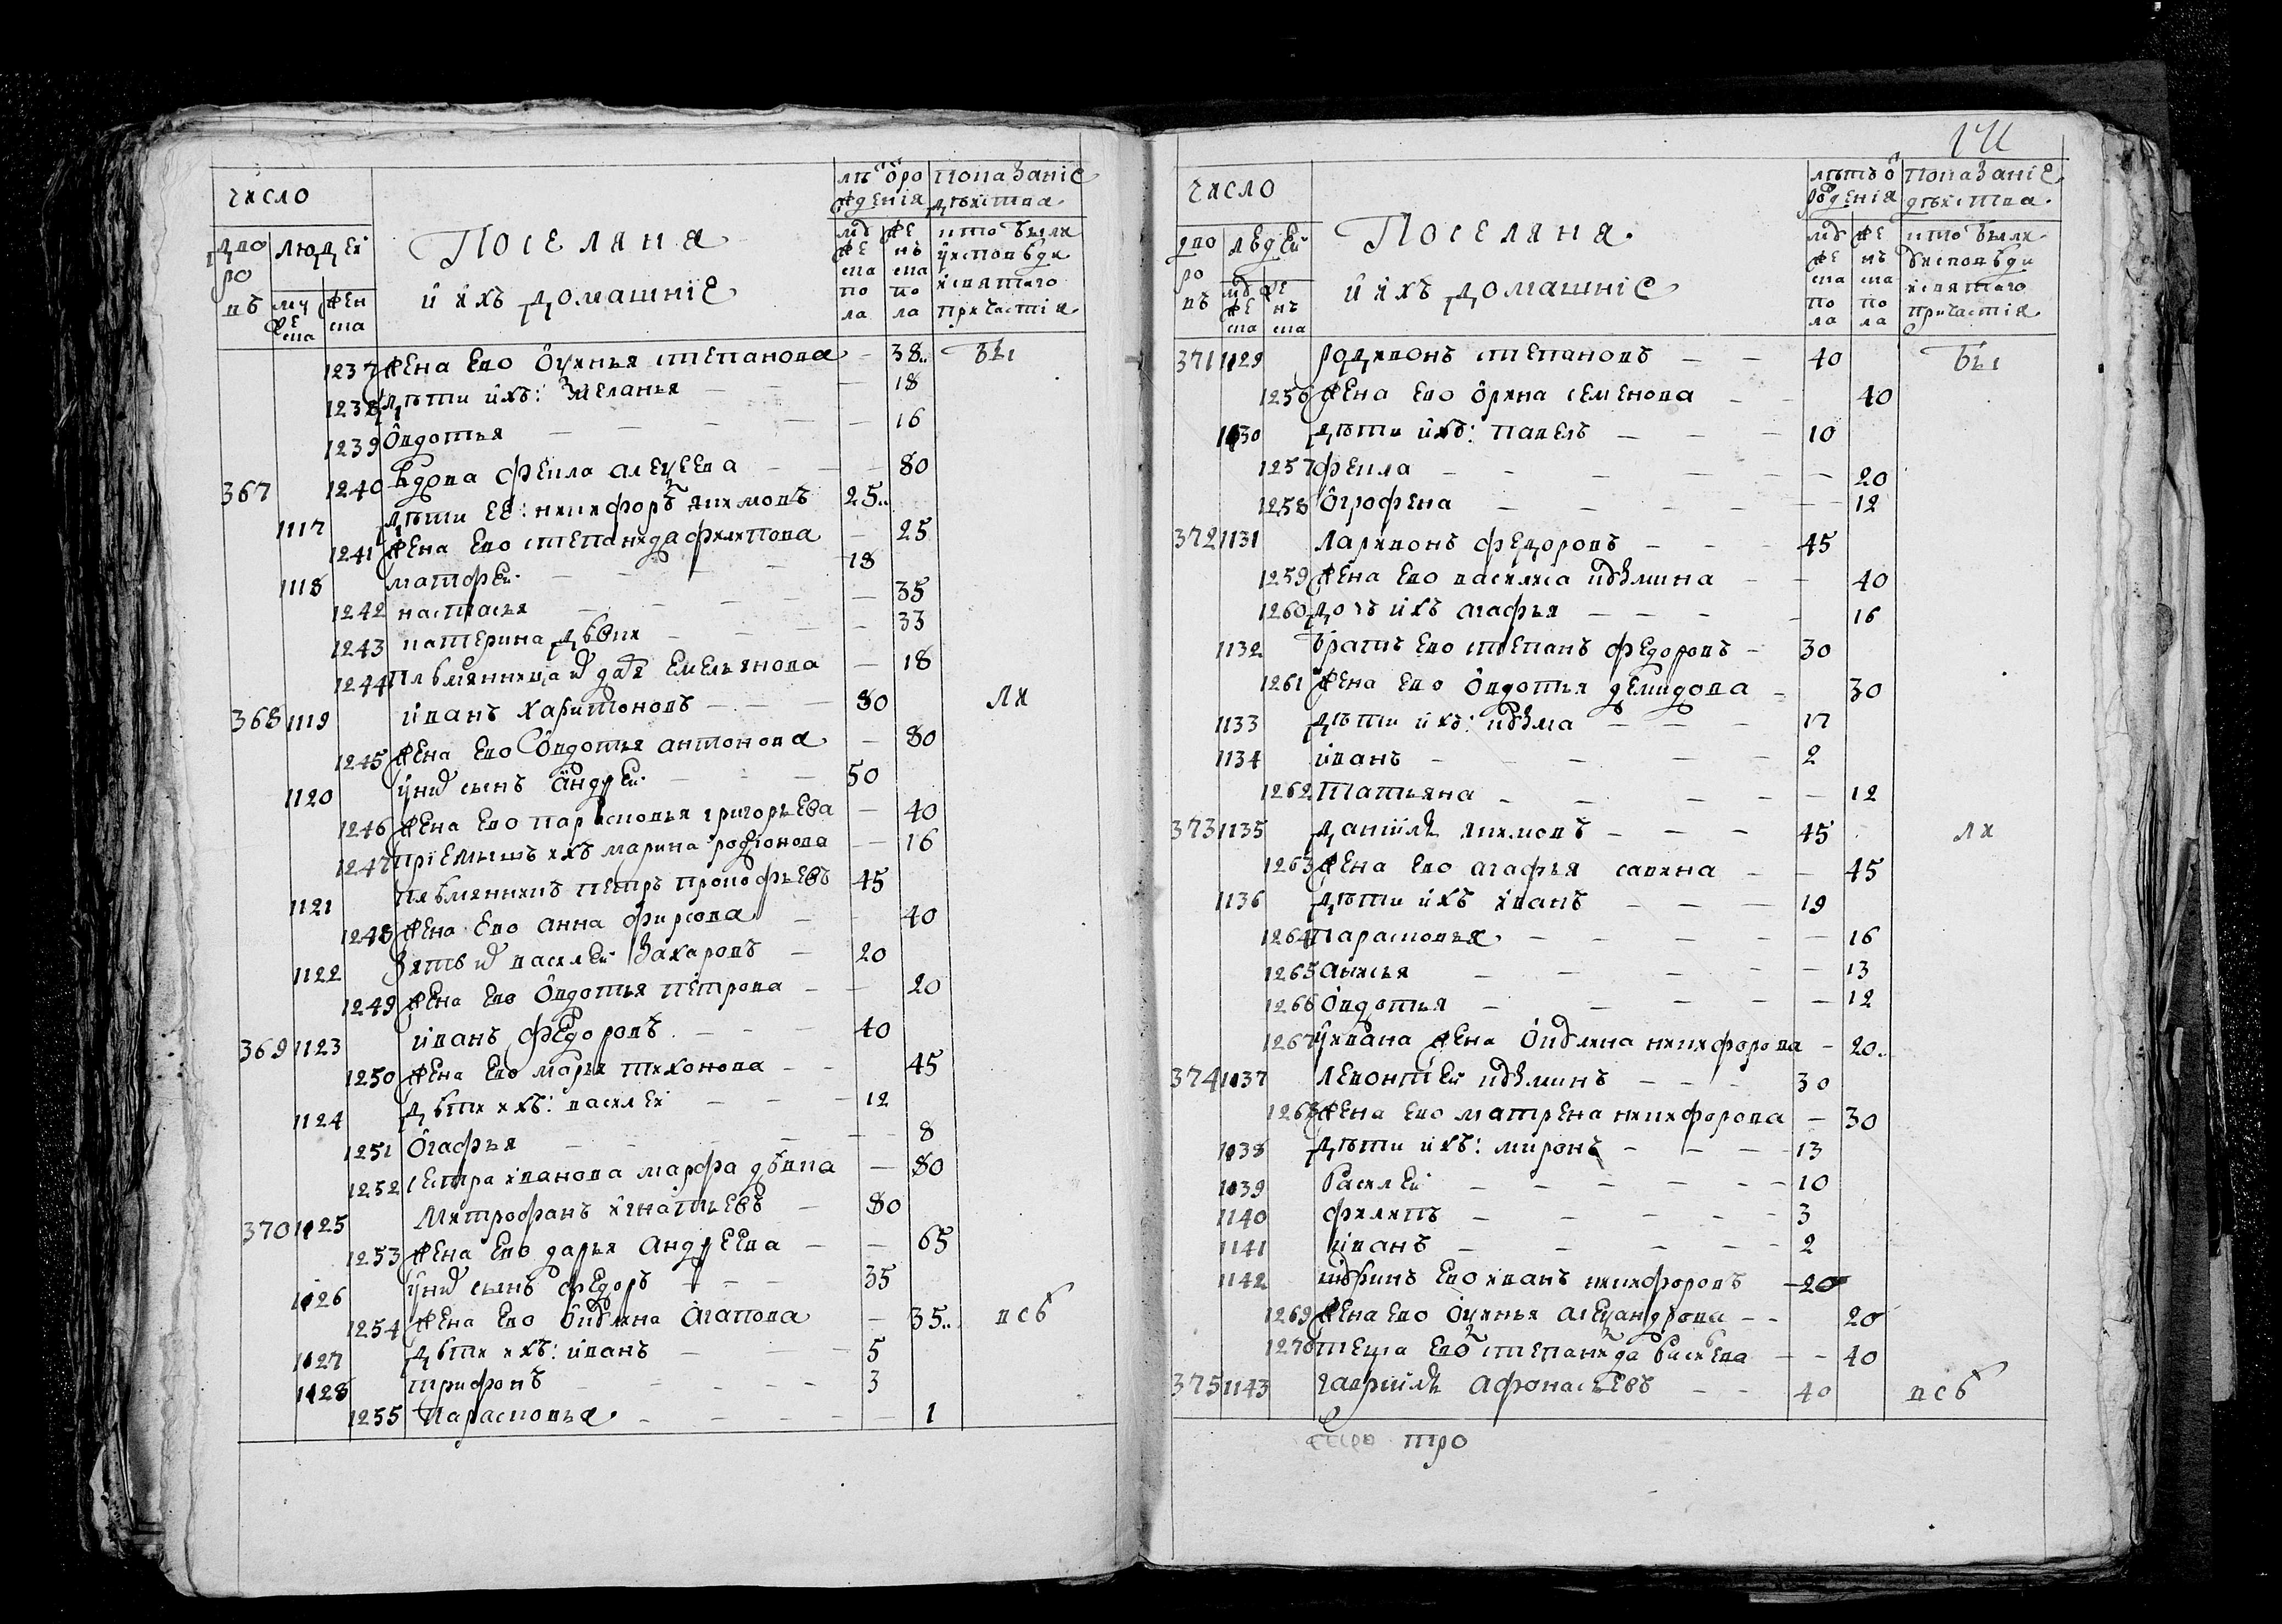 число
Поселяня
и ихъ домашніе
лѣ ѿ ро
жденія
показаніе
дѣиства
дво
ро
въ
людеи
му
же
ска
жен
ска
му
же
ска
по
ла
же
нъ
ска
по
ла
кто былъ
у исповѣди
и святаго
причастія
1237 жена ево Ѻксинья степанова — 38 бы
1238 дѣти ихъ: меланья — 18
1239 Ѻвдотья — 16
367 1240 вдова фекла алексеева — 80
1117 дѣти ее: никифоръ якимовъ 25
1241 жена ево степанида филипова — 25
1118 матфеи 18
1242 настасья — 35
1243 катерина дѣвки — 33
1244 племянница емельянова — 18
368 1119 иванъ харитоновъ — 80 ли
1245 жена ево Ѻвдотья антонова — 80
1120 у нихъ сынъ андреи — 50
1246 жена ево парасковья григорьева — 40
1247 пріемышъ ихъ марина родіонова — 16
1121 племянникъ петръ прокофьевъ 45
1248 жена ево анна фирсова — 40
1122 зять василеи захаровъ — 20
1249 жена ево Ѻвдотья петрова — 20
369 1123 иванъ федоровъ — 40
1250 жена ево марья тихонова — 45
1124 дѣти ихъ: василеи — 12
1251 Ѻгафья — 8
1252 сестра иванова марфа дѣвка — 80
370 1125 митрофанъ игнатьевъ — 80
1253 жена ево дарья андреева — 65
1126 у нихъ сынъ федоръ — 35
1254 жена ево акулина агапова — 35 всѣ
1127 дѣти ихъ: иванъ — 5
1128 трифонъ — 3
1255 парасковья — 1
число
Поселяня
и ихъ домашніе
лѣтъ ѿ
рожденія
показаніе
дѣиства
дво
ро
въ
людеи
му
же
ска
же
нъ
ска
му
же
ска
по
ла
же
нъ
ска
по
ла
кто былъ
у исповѣди
и святаго
причастія
371 1129 родивонъ степановъ — 40 бы
1256 жена ево Ѻрина семенова — 40
1130 дѣти ихъ: павелъ — 10
1257 фекла — 20
1258 Ѻгрофена — 12
372 1131 ларивонъ федоровъ — 45
1259 жена ево василиса кузмина — 40
1260 дочъ ихъ агафья — 16
1132 братъ ево степанъ федоровъ — 30
1261 жена ево Ѻвдотья демидова — 30
1133 дѣти ихъ: кузма — 17
1134 иванъ — 2
1262 татьяна — 12
373 1135 даніилъ якимовъ — 45 ли
1263 жена ево агафья савина — 45
1136 дѣти ихъ иванъ — 19
1264 парасковья — 16
1265 анисья — 13
1266 Ѻвдотья — 12
1267 у ивана жена Ѻкулина никифорова — 20
374 1137 левонтеи кузминъ — 30
1268 жена ево матрена никифорова — 30
1138 дѣти ихъ: миронъ — 13
1139 василеи — 10
1140 филипъ — 3
1141 иванъ — 2
1142 шуринъ ево иванъ никифоровъ — 20
1269 жена ево Ѻксинья александрова — 20
1270 теща ево степанида васильева — 40
375 1143 гавриилъ афонасьевъ — 40 всѣ
тро